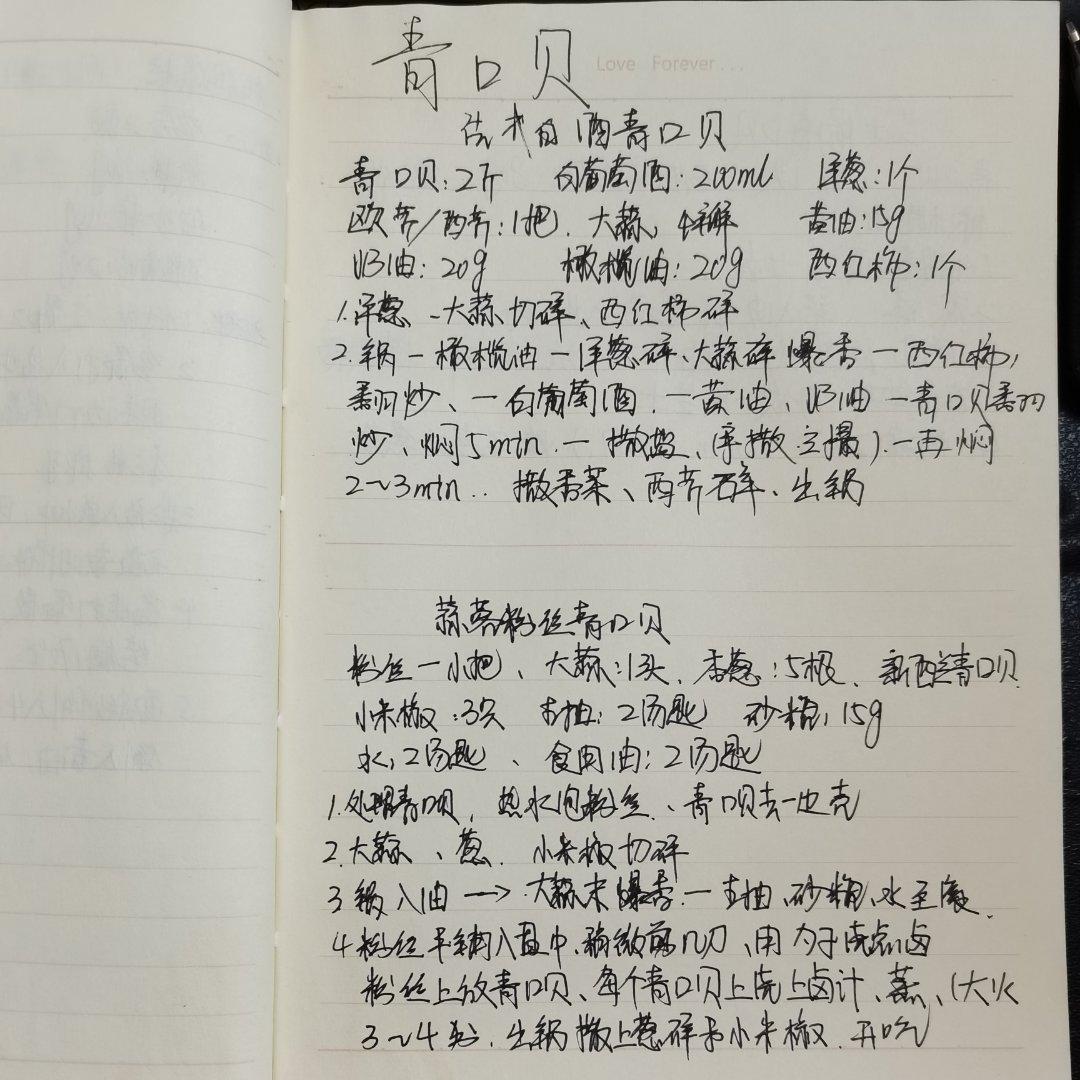 青口贝
Love Forever...
法式白酒青口贝
青口贝:2斤 白葡萄酒:200ml 洋葱:1个
欧芹/西芹:1把、大蒜、4瓣 黄油:15g
奶油:20g 橄榄油:20g 西红柿:1个
1.洋葱、大蒜切碎、西红柿碎
2.锅-橄榄油-洋葱碎、大蒜碎爆香-西红柿,
翻炒、-白葡萄酒.-黄油、奶油-青口贝翻
炒、焖5min.-撒盐、 撮).-再焖
2~3min..撒香菜、西芹碎、出锅
蒜蓉粉丝青口贝
粉丝一小把、大蒜:1头、香葱:5根、新西兰青口贝
小米椒:3只 生抽:2汤匙 砂糖:15g
水:2汤匙、食用油:2汤匙
1.处理青口贝,热水泡粉丝、青口贝去一边壳
2.大蒜、葱.小米椒切碎
3锅入油→大蒜末爆香.-生抽、砂糖、水
4粉丝平铺入盘中、稍微剪几刀、用勺子浇点卤
粉丝上放青口贝、每个青口贝上浇上卤汁、蒸、(大火
3~4 、出锅撒上葱碎和小米椒.开吃